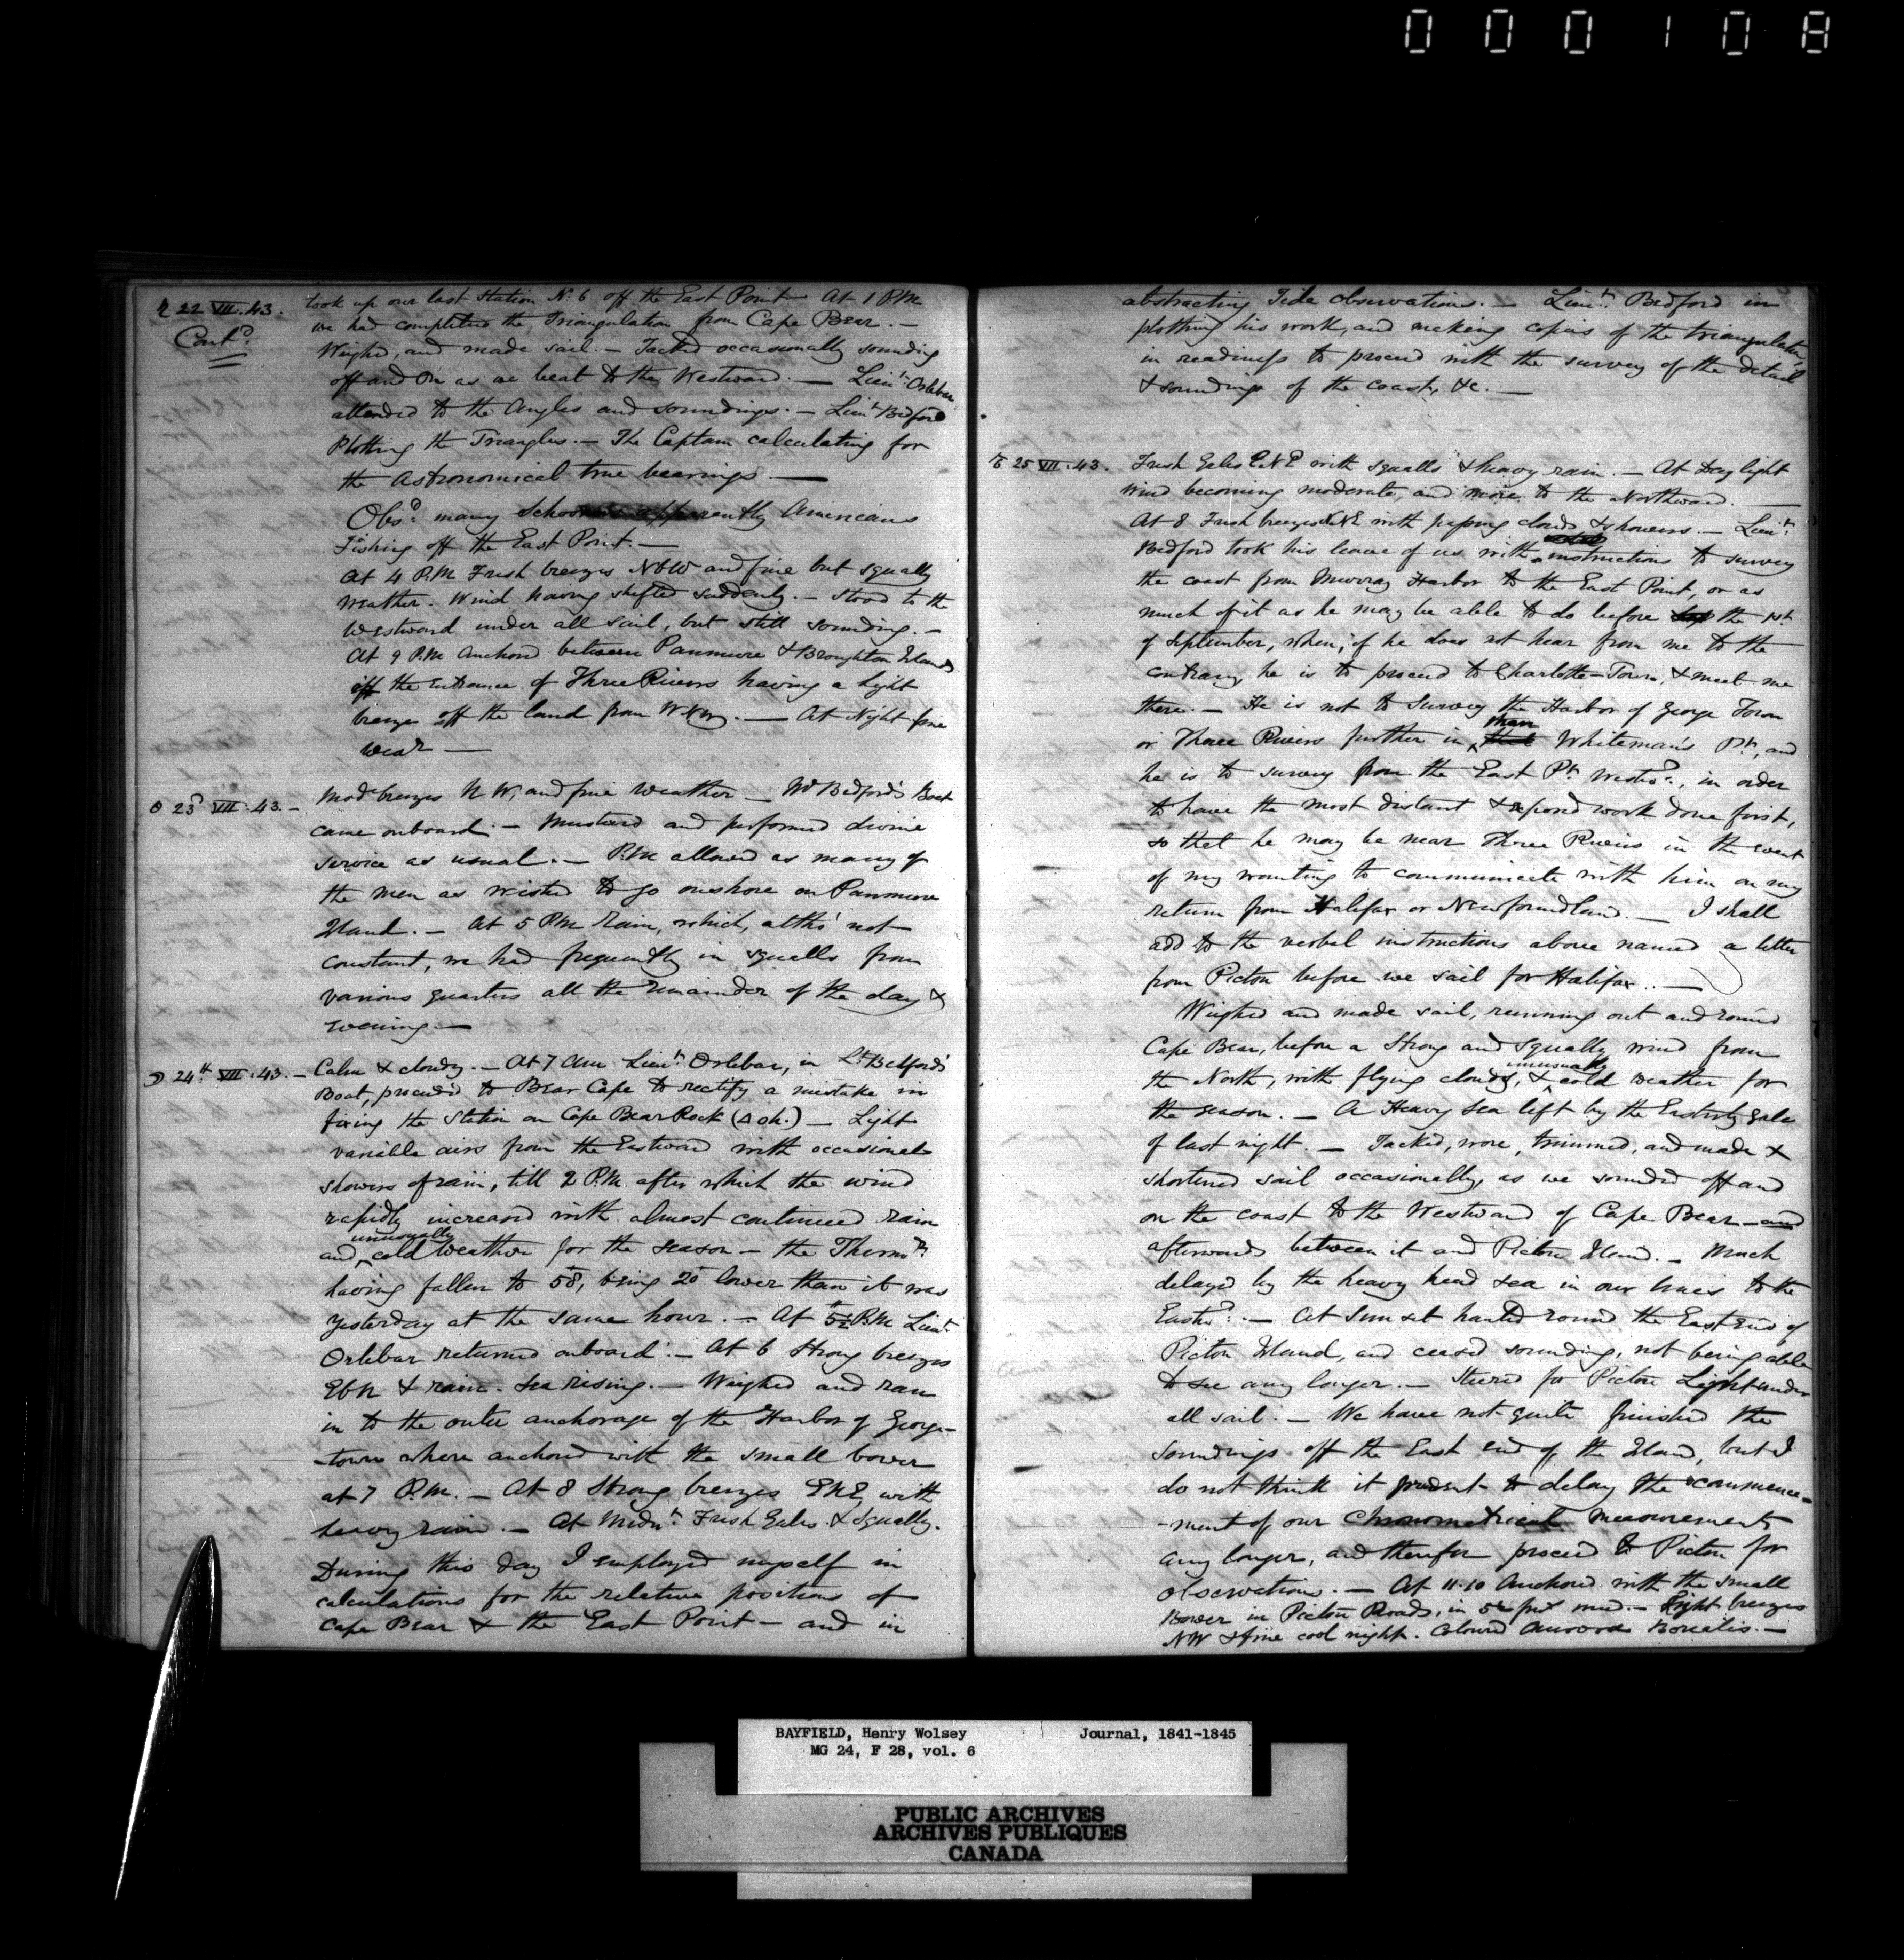 000108
♄ 22 VII. 43.
Contd.
took up our last Station No. 6 off the East Point At 1 P.M
we had completed the Triangulation from Cape Bear. —
Weighed, and made sail. — Tacked occasionally sounding
off and on as we beat to the Westward. — Lieut. Orlebar
attended to the Angles and soundings. — Lieut. Bedford
Plotting the Triangles. — The Captain calculating for
the Astronomical true bearings —
Obsd. many Schooners apparently Americans
Fishing off the East Point. —
At 4 P.M Fresh breezes NbW and fine but squally
weather. Wind having shifted suddenly. — Stood to the
Westward under all sail, but still sounding. —
At 9 P.M Anchored between Panmure & Broughton Islands
off the Entrance of Three Rivers having a light
breeze off the land from WNW. — At Night fine
wear —
☉ 23d VII. 43. —
Mode breezes N W, and fine weather — Mr Bedford's Boat
came onboard. — Mustered and performed divine
service as usual. — P.M allowed as many of
the men as wished to go onshore on Panmure
Island. — At 5 P.M rain, which, altho' not
constant, we had frequently in squalls from
various quarters all the remainder of the day &
evening. —
☽ 24th VII. 43. —
Calm & cloudy. — At 7 Am Lieut. Orlebar, in Lt. Bedford's
Boat, proceeded to Bear Cape to rectify a mistake in
fixing the Station on Cape Bear Rock (△ ok.) — Light
variable airs from the Eastward with occasional
showers of rain, till 2 P.M. after which the wind
rapidly increased with almost continued rain
unusually
and ‸ cold weather for the season — the Thermr.
having fallen to 58°, being 20° lower than it was
yesterday at the same hour. — At 5½ P.M Lieut.
Orlebar returned onboard. — At 6 Strong breezes
EbN & rain. Sea rising. — Weighed and ran
in to the outer anchorage of the Harbor of George-
town where anchored with the small bower
at 7 P.M. — At 8 Strong breezes ENE, with
heavy rain. — At Midnt. Fresh Gales & Squally.
During this day I employed myself in
calculations for the relative positions of
Cape Bear & the East Point — and in
abstracting Tide observations. — Lieut. Bedford in
plotting his work, and making copies of the triangulation,
in readiness to proceed with the survey of the detail
& soundings of the coast, &c. —
♂ 25 VII. 43.
Fresh Gales ENE with squalls & heavy rain. — At Day light
wind becoming moderate, and more to the Northward. —
At 8 Fresh breezes NNE with passing clouds & showers. — Lieut.
Bedford took his leave of us with ‸ instructions to survey
verbal
the coast from Murray Harbor to the East Point, or as
much of it as he may be able to do before the 1st.
of September, when, if he does not hear from me to the
contrary, he is to proceed to Charlotte-Town, & meet me
there. — He is not to Survey the Harbor of George Town
than
or Three Rivers further in ‸ Whiteman's Pt. and
he is to survey from the East Pt. Westwd., in order
to have the most distant & exposed work done first,
so that he may be near Three Rivers in the event
of my wanting to communicate with him on my
return from Halifax or Newfoundland. — I shall
add to the verbal instructions above named a letter
from Pictou before we sail for Halifax.. —
Weighed and made sail, running out and round
Cape Bear, before a Strong and squally wind from
unusually
the North, with flying clouds, & ‸ cold weather for
the season. — A Heavy Sea left by the Easterly gale
of last night. — Tacked, wore, trimmed, and made &
shortened sail occasionally, as we sounded off and
on the coast to the Westward of Cape Bear — and
afterwards between it and Pictou Island. — Much
delayed by the heavy head sea in our lines to the
Eastwd.. — At Sun set hauled round the East End of
Pictou Island, and ceased sounding, not being able
to see any longer. — Steered for Pictou Light under
all sail. — We have not quite finished the
Soundings off the East end of the Island, but I
do not think it prudent to delay the commence-
-ment of our Chronometrical measurements
any longer, and therefore proceed to Pictou for
observations. — At 11.10 Anchored with the small
Bower in Pictou Roads, in 5¼ fms mud. — Light breezes
NW & fine cool night. Coloured Aurora Borealis. —
BAYFIELD, Henry Wolsey Journal, 1841-1845
MG 24, F 28, vol. 6
PUBLIC ARCHIVES
ARCHIVES PUBLIQUES
CANADA